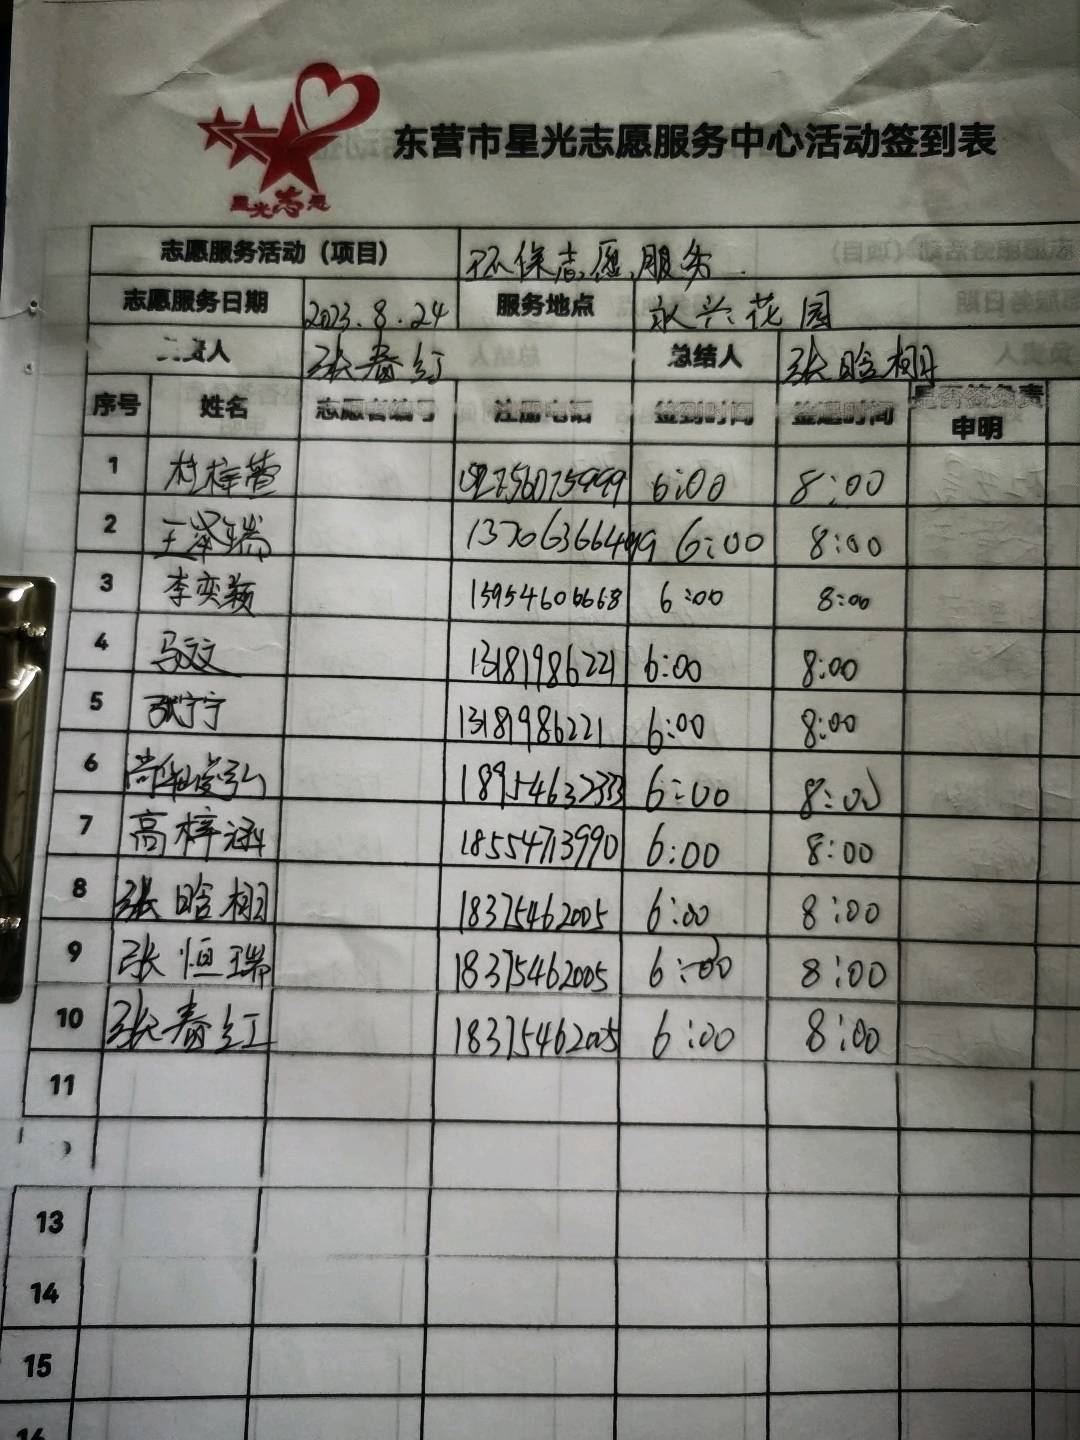 星光志愿
东营市星光志愿服务中心活动签到表
志愿服务活动（项目） 环保志愿服务
志愿服务日期 2023.8.24 服务地点 永兴花园
责人 张春红 总结人 张晗栩
序号 姓名 志愿者编号 注册电话 签到时间 签退时间 是否签免责申明
1 杜梓萱 6:00 8:00
2 王泽瑞 6:00 8:00
3 李奕颖 15954606668 6:00 8:00
4 马文文 13181986221 6:00 8:00
5 张宁宁 13181986221 6:00 8:00
6 18954632333 6:00 8:00
7 高梓涵 18554713990 6:00 8:00
8 张晗栩 18375462005 6:00 8:00
9 张恒瑞 18375462005 6:00 8:00
10 张春红 18375462005 6:00 8:00
11
13
14
15
16